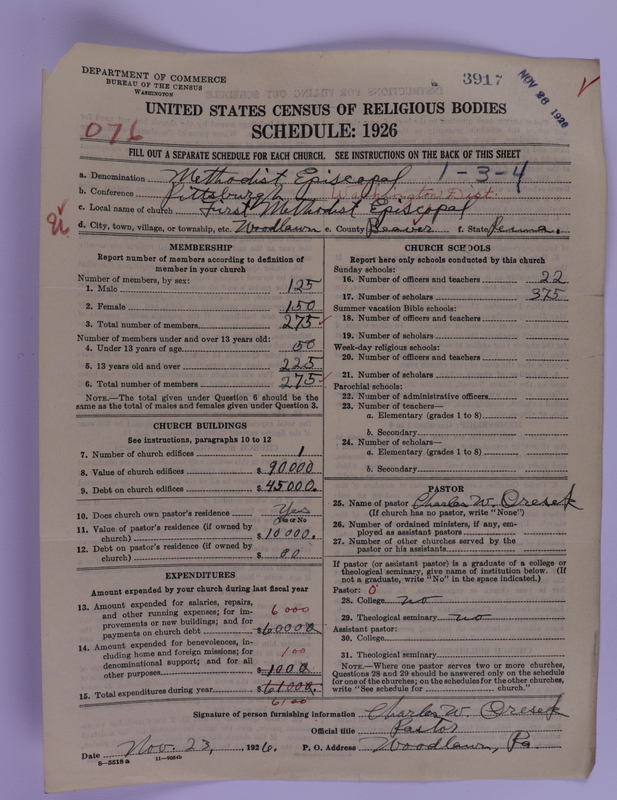 DEPARTMENT OF COMMERCE
BUREAU OF THE CENSUS
WASHINGTON
3917
NOV 26 1926
076
UNITED STATES CENSUS OF RELIGIOUS BODIES
SCHEDULE: 1926
FILL OUT A SEPARATE SCHEDULE FOR EACH CHURCH. SEE INSTRUCTIONS ON THE BACK OF THIS SHEET
a. Denomination Methodist Episcopal 1-3-4
b. Conference Pittsburgh Washington Dist.
c. Local name of church First Methodist Episcopal
d. City, town, village, or township, etc. Woodlawn e. County Beaver f. State Penna.
MEMBERSHIP
Report number of members according to definition of
member in your church
Number of members, by sex:
1. Male 125
2. Female 150
3. Total number of members 275
Number of members under and over 13 years old:
4. Under 13 years of age 50
5. 13 years old and over 225
6. Total number of members 275
NOTE.—The total given under Question 6 should be the
same as the total of males and females given under Question 3.
CHURCH BUILDINGS
See instructions, paragraphs 10 to 12
7. Number of church edifices 1
8. Value of church edifices $ 90000
9. Debt on church edifices $ 45000.
10. Does church own pastor's residence Yes
Yes or No
11. Value of pastor's residence (if owned by
church) $ 10000.
12. Debt on pastor's residence (if owned by
church) $ 00
EXPENDITURES
Amount expended by your church during last fiscal year
13. Amount expended for salaries, repairs,
and other running expenses; for im-
provements or new buildings; and for
payments on church debt $ 60000
6000
14. Amount expended for benevolences, in-
cluding home and foreign missions; for
denominational support; and for all
other purposes 1000
100
15. Total expenditures during year $ 61000.
6100
CHURCH SCHOOLS
Report here only schools conducted by this church
Sunday schools:
16. Number of officers and teachers 22
17. Number of scholars 375
Summer vacation Bible schools:
18. Number of officers and teachers
19. Number of scholars
Week-day religious schools:
20. Number of officers and teachers
21. Number of scholars
Parochial schools:
22. Number of administrative officers
23. Number of teachers—
a. Elementary (grades 1 to 8)
b. Secondary
24. Number of scholars—
a. Elementary (grades 1 to 8)
b. Secondary
PASTOR
25. Name of pastor Charles W. Oresek
(If church has no pastor, write "None")
26. Number of ordained ministers, if any, em-
ployed as assistant pastors
27. Number of other churches served by the
pastor or his assistants
If pastor (or assistant pastor) is a graduate of a college or
theological seminary, give name of institution below. (If
not a graduate, write "No" in the space indicated.)
Pastor: 0
28. College no
29. Theological seminary no
Assistant pastor:
30. College
31. Theological seminary
NOTE.—Where one pastor serves two or more churches,
Questions 28 and 29 should be answered only on the schedule
for one of the churches; on the schedules for the other churches,
write "See schedule for church."
Signature of person furnishing information Charles W. Oresek
Official title Pastor
Date Nov. 23, 1926. P. O. Address Woodlawn, Pa.
8—5518a 11—9054b